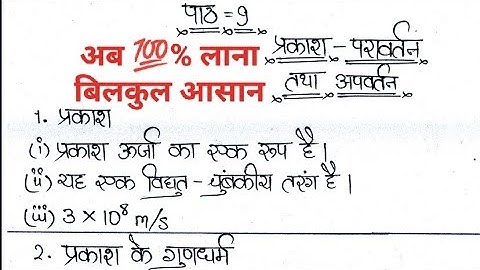 पाठ = 9
अब 100% लाना
प्रकाश - परावर्तन
बिलकुल आसान
तथा अपवर्तन
1. प्रकाश
(i) प्रकाश ऊर्जा का एक रूप है।
(ii) यह एक विद्युत - चुंबकीय तरंग है।
(iii) 3 × 10⁸ m/s
2. प्रकाश के गुणधर्म